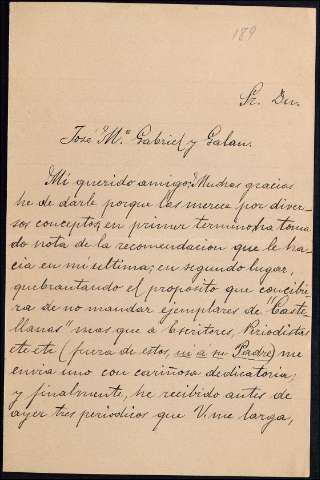 189
Sr. Dn.
José Mª Gabriel y Galan.
Mi querido amigo: Muchas gracias
he de darle porque las merece por diver-
sos conceptos, en primer termino ha toma
do nota de la recomendacion que le ha-
cia en mi ultima; en segundo lugar,
quebrantando el proposito que concibie-
ra de no mandar ejemplares de "Caste-
llanas" mas que a Escritores, Periodistas
etc etc (fuera de estos, ni a su Padre) me
envia uno con cariñosa dedicatoria;
y finalmente, he recibido antes de
ayer tres periodicos que V. me larga,